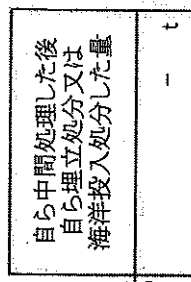 自ら中間処理した後
自ら埋立処分又は
海洋投入処分した量
－ t